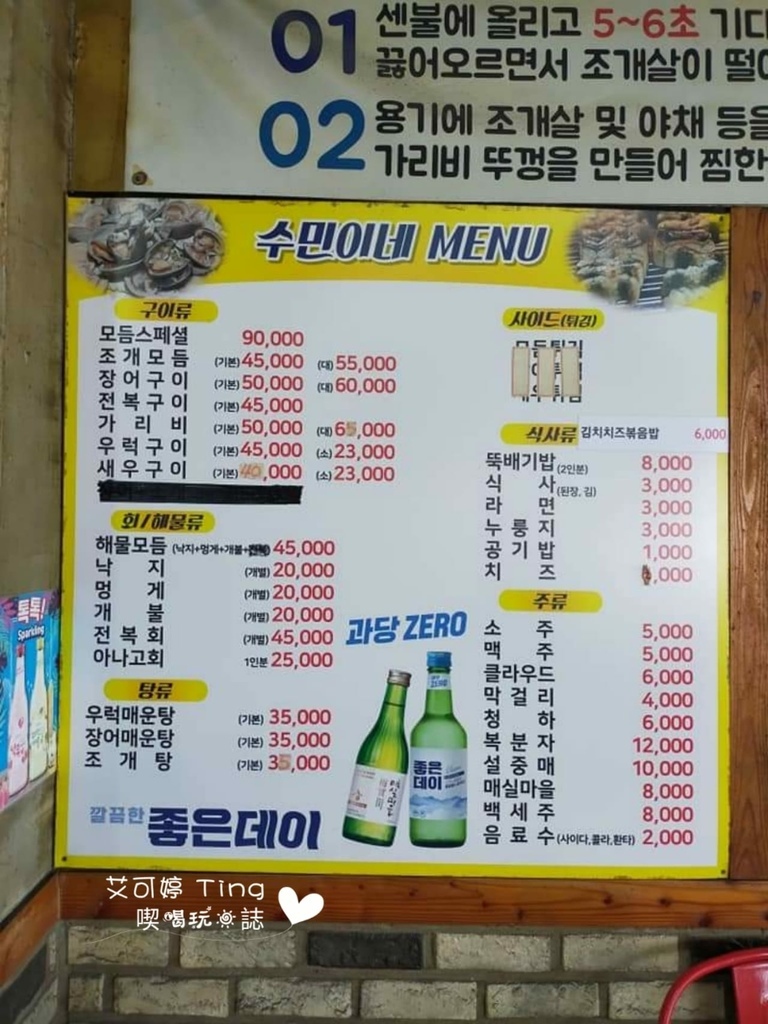 01 센불에 올리고 5~6초
끓어오르면서 조개살이
02 용기에 조개살 및 야채
가리비 뚜껑을 만들어
수민이네 MENU
구이류
모듬스페셜 90,000
조개모듬 (기본)45,000 (대)55,000
장어구이 (기본)50,000 (대)60,000
전복구이 (기본)45,000
가리비 (기본)50,000 (대)65,000
우럭구이 (기본)45,000 (소)23,000
새우구이 (기본)40,000 (소)23,000
회/해물류
해물모듬 (낙지+멍게+개불+ 45,000
낙지 (개별)20,000
멍게 (개별)20,000
개불 (개별)20,000
전복회 (개별)45,000
아나고회 1인분 25,000
탕류
우럭매운탕 (기본) 35,000
장어매운탕 (기본) 35,000
조개탕 (기본) 35,000
깔끔한 좋은데이
과당 ZERO
좋은
데이
사이드(튀김)
식사류 김치치즈볶음밥 6,000
뚝배기밥(2인분) 8,000
식사(된장, 김) 3,000
라면 3,000
누룽지 3,000
공기밥 1,000
치즈 ,000
주류
소주 5,000
맥주 5,000
클라우드 6,000
막걸리 4,000
청하 6,000
복분자 12,000
설중매 10,000
매실마을 8,000
백세주 8,000
음료수(사이다,콜라,환타) 2,000
톡톡!
Sparkling
艾可婷 Ting
喫喝玩☼誌